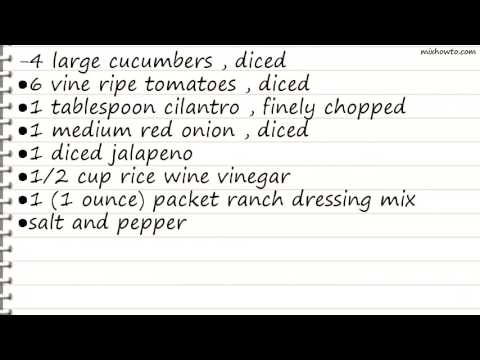 mixhowto.com
-4 large cucumbers , diced
•6 vine ripe tomatoes , diced
•1 tablespoon cilantro , finely chopped
•1 medium red onion , diced
•1 diced jalapeno
•1/2 cup rice wine vinegar
•1 (1 ounce) packet ranch dressing mix
•salt and pepper